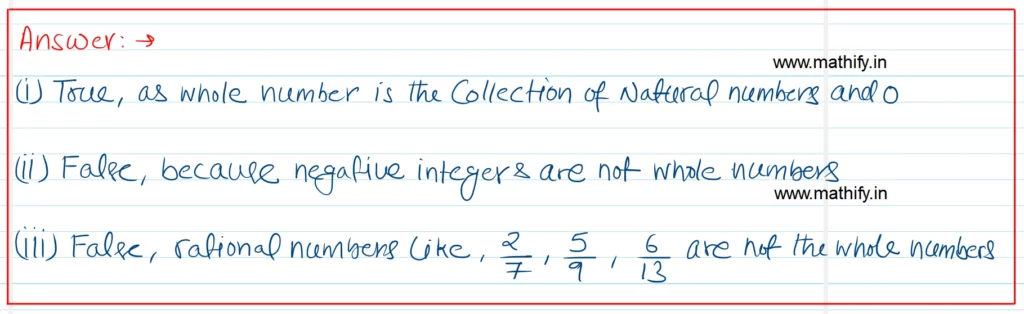 Answer: →
www.mathify.in
(i) True, as whole number is the Collection of Natural numbers and 0
(ii) False, because negative integers are not whole numbers
www.mathify.in
(iii) False, rational numbers like, 2/7, 5/9, 6/13 are not the whole numbers